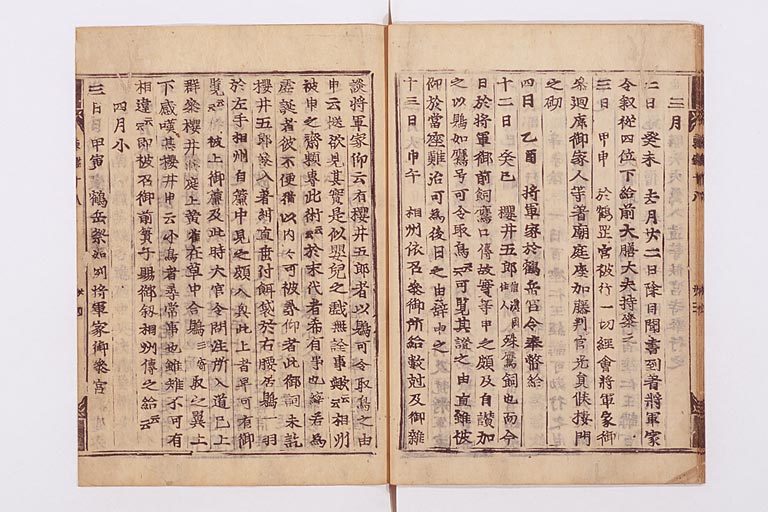 三月
二日 癸未 去月廿二日除目聞書到著將軍家
令叙從四位下給前大膳大夫持參之
三日 甲申 於鶴岳宮被行一切經會將軍家御
參廻廊御家人等著廟庭座加藤判官光員候樓門
之砌
四日 乙酉 將軍家於鶴岳宮令奉幣給
十二日 癸巳 櫻井五郎 殊鷹飼也而今
日於將軍御前飼鷹口傳故實等申之頗及自讚加
之以鵙如鷹可令取鳥云云可覽其證之由直雖被
仰於當座難治可爲後日之由辭申之
十三日 戊午 相州依召參御所給數尅及御雜
談將軍家仰云有櫻井五郎者以鵙可令取鳥之由
申云慥欲見其實是似嬰兒之戲無詮事歟云云相州
被申云齋頼專此術云云於末代者希有事也縱若爲
虚誕者彼不便猶以内々可被尋仰者此御詞未訖
櫻井五郎參入者紺直垂付餌袋於右腰居鵙一羽
於左手相州自簾中見之頗入興此上者早可有御
覽云云被上御簾及此時大官令問注所入道已上
群參櫻井候庭上黄雀在草中合鵙三寄取之翼上
下感嘆甚櫻井申云小鳥者尋常事也雖雉不可有
相違云云即被召御前簀子賜御剱相州傳之給云云
四月小
三日 甲寅 鶴岳祭如例將軍家御參宮